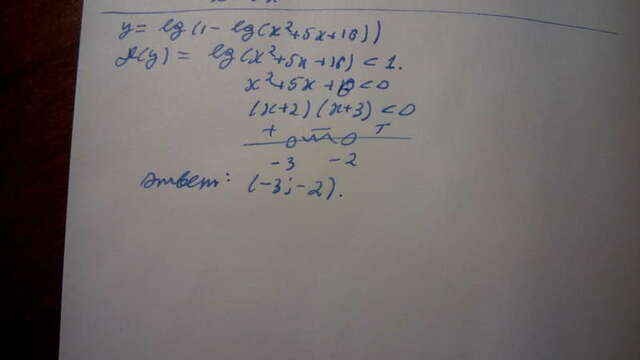 y = lg(1 - lg(x²+5x+16))
D(y) = lg(x²+5x+16) < 1.
x²+5x+6<0
(x+2)(x+3)<0
+ - +
-3 -2
Ответ: (-3; -2).